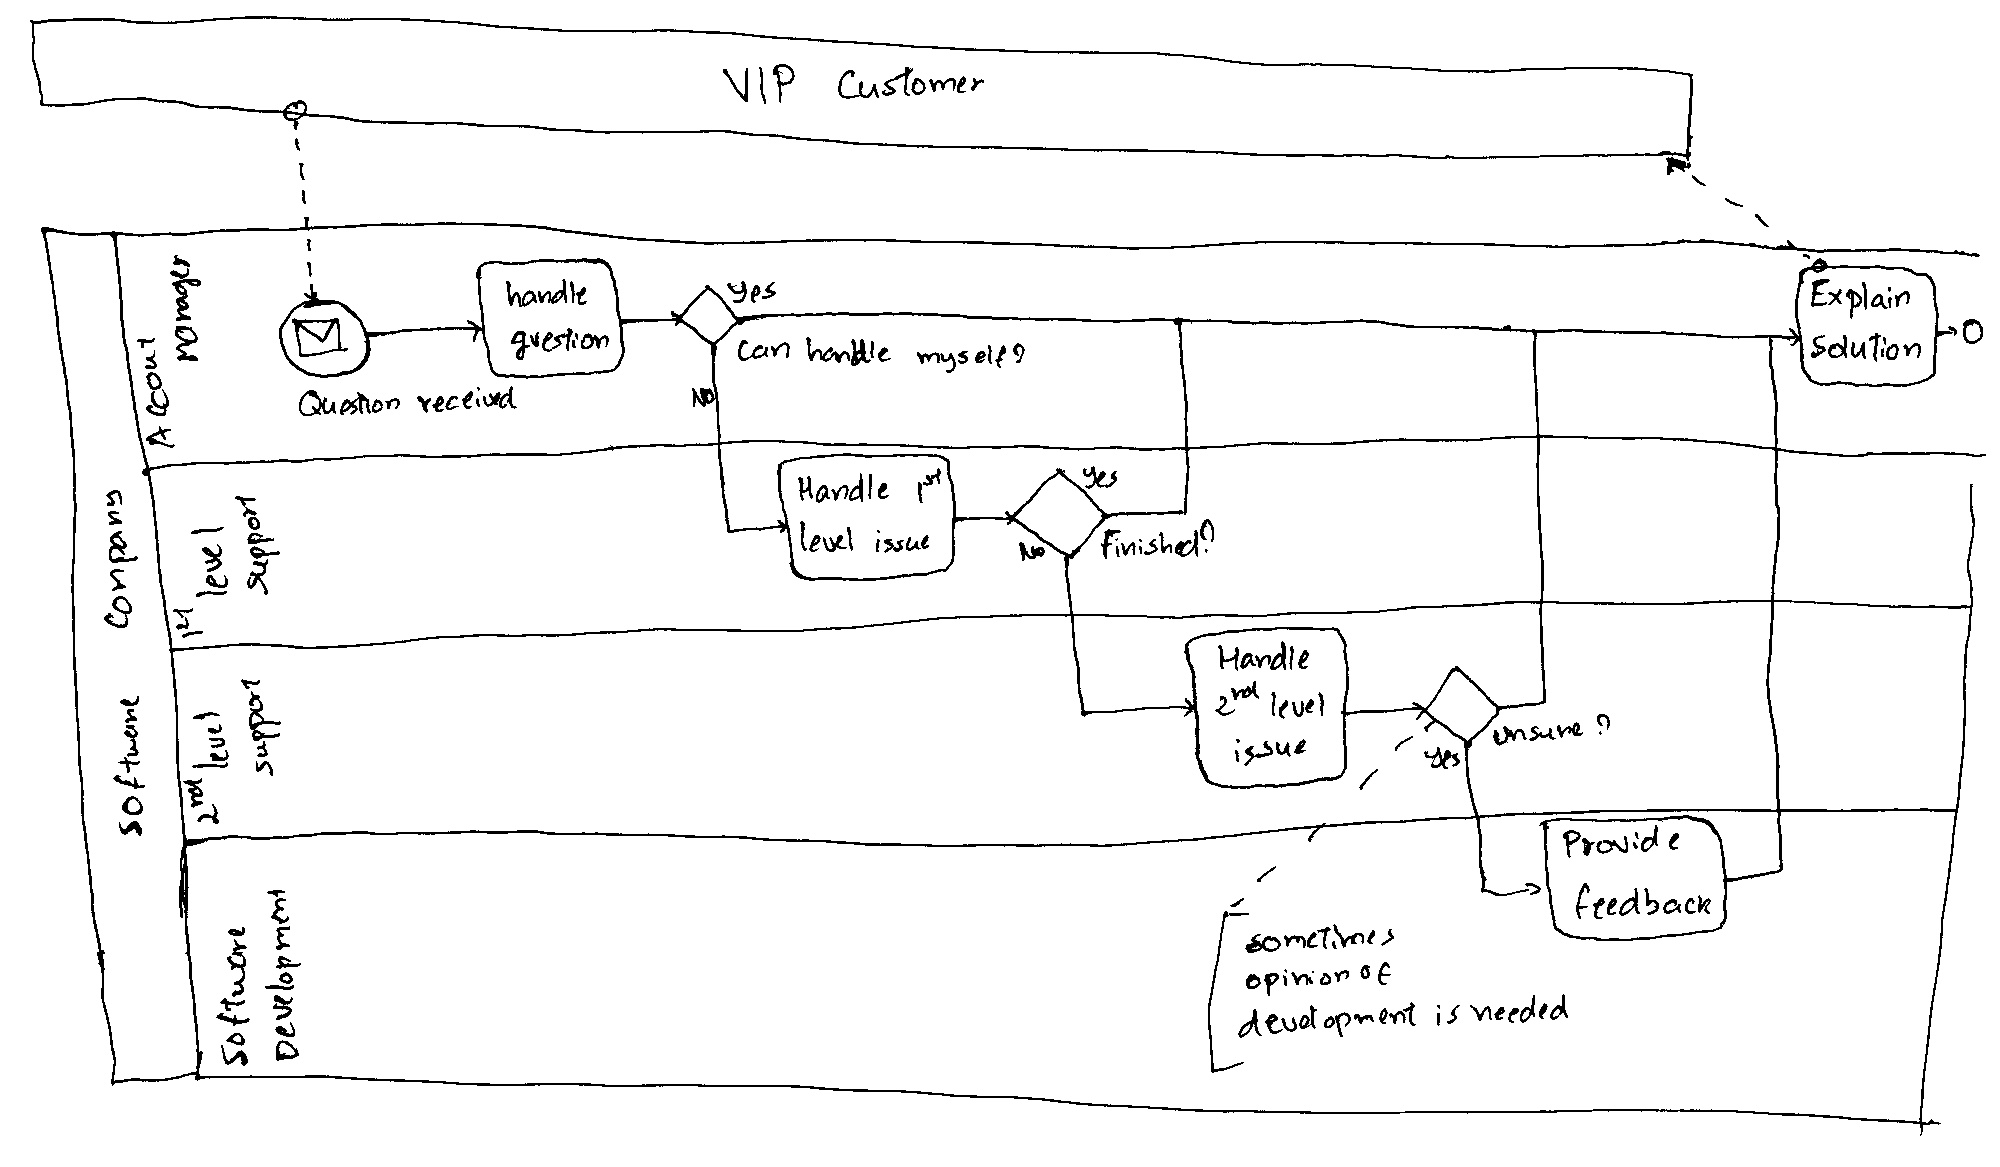 VIP Customer
Software Company
Acount
manager
Question received
handle
question
Yes
Can handle myself?
No
Explain
Solution
1st level
support
Handle 1st
level issue
Yes
Finished?
No
2nd level
support
Handle
2nd level
issue
unsure?
Yes
Software
Development
Provide
feedback
sometimes
opinion of
development is needed